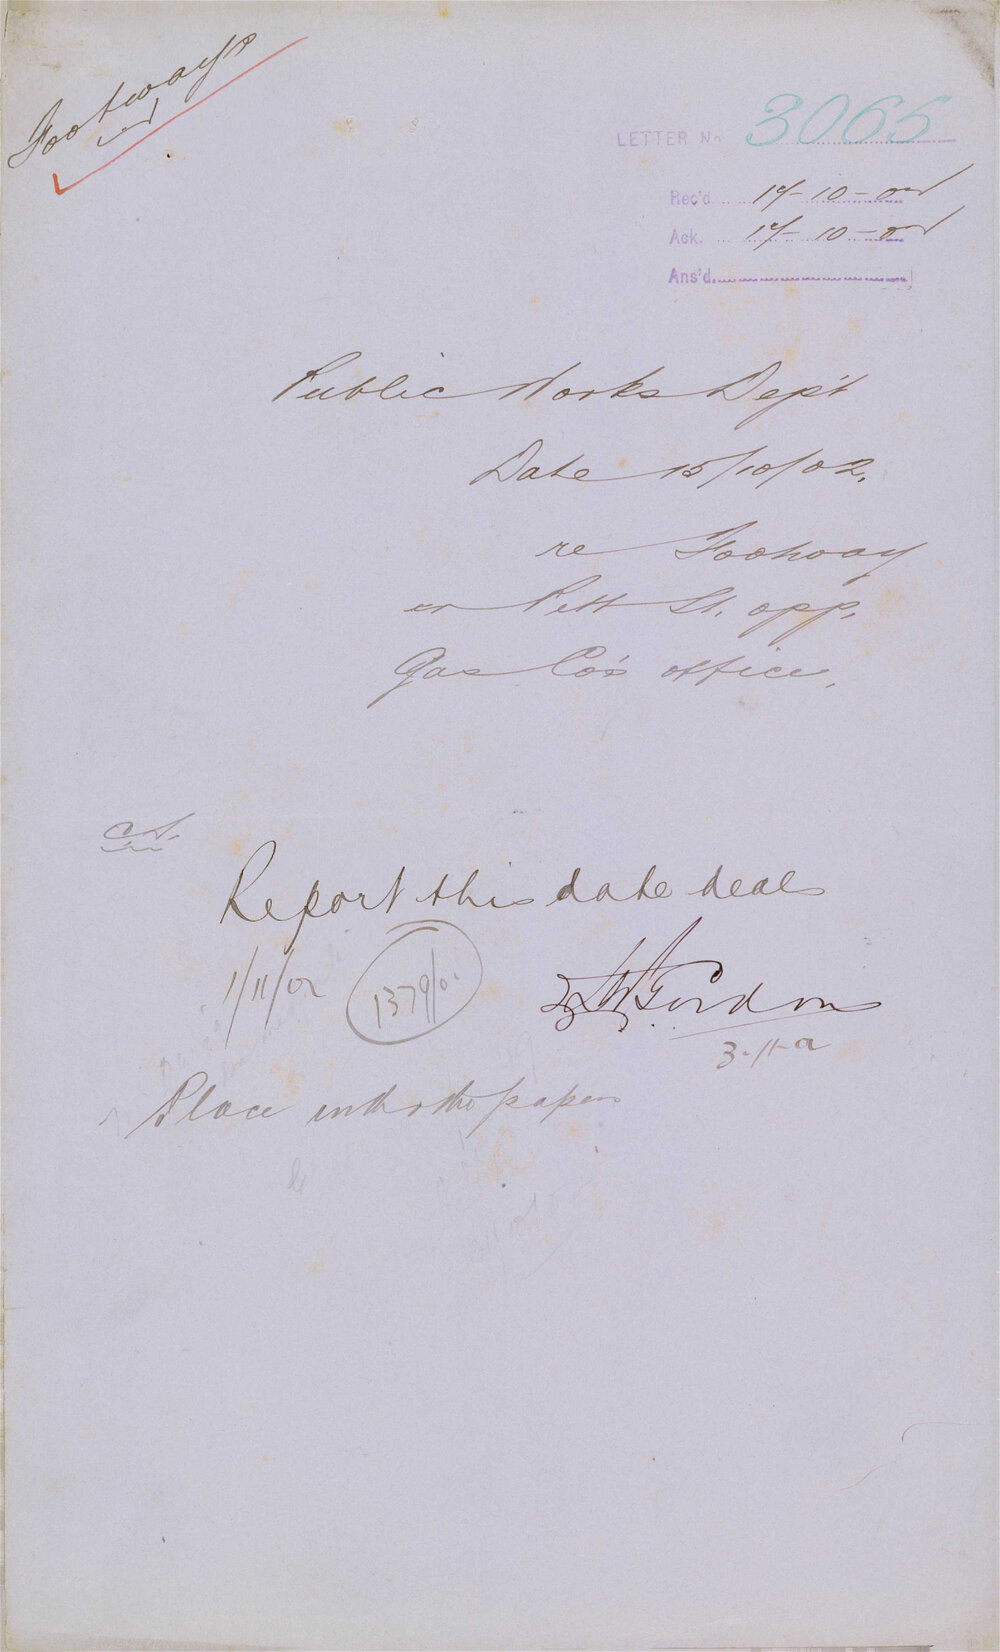 Footways
LETTER No 3065
Rec'd 17-10-02
Ack. 17-10-02
Ans'd.
Public Works Dep't
Date 15/10/02.
re Footway
in Pitt St. opp.
Gas Co's office.
Report this date deals
1/11/02 1379/02
Gordon
3.11.02
Place with other papers